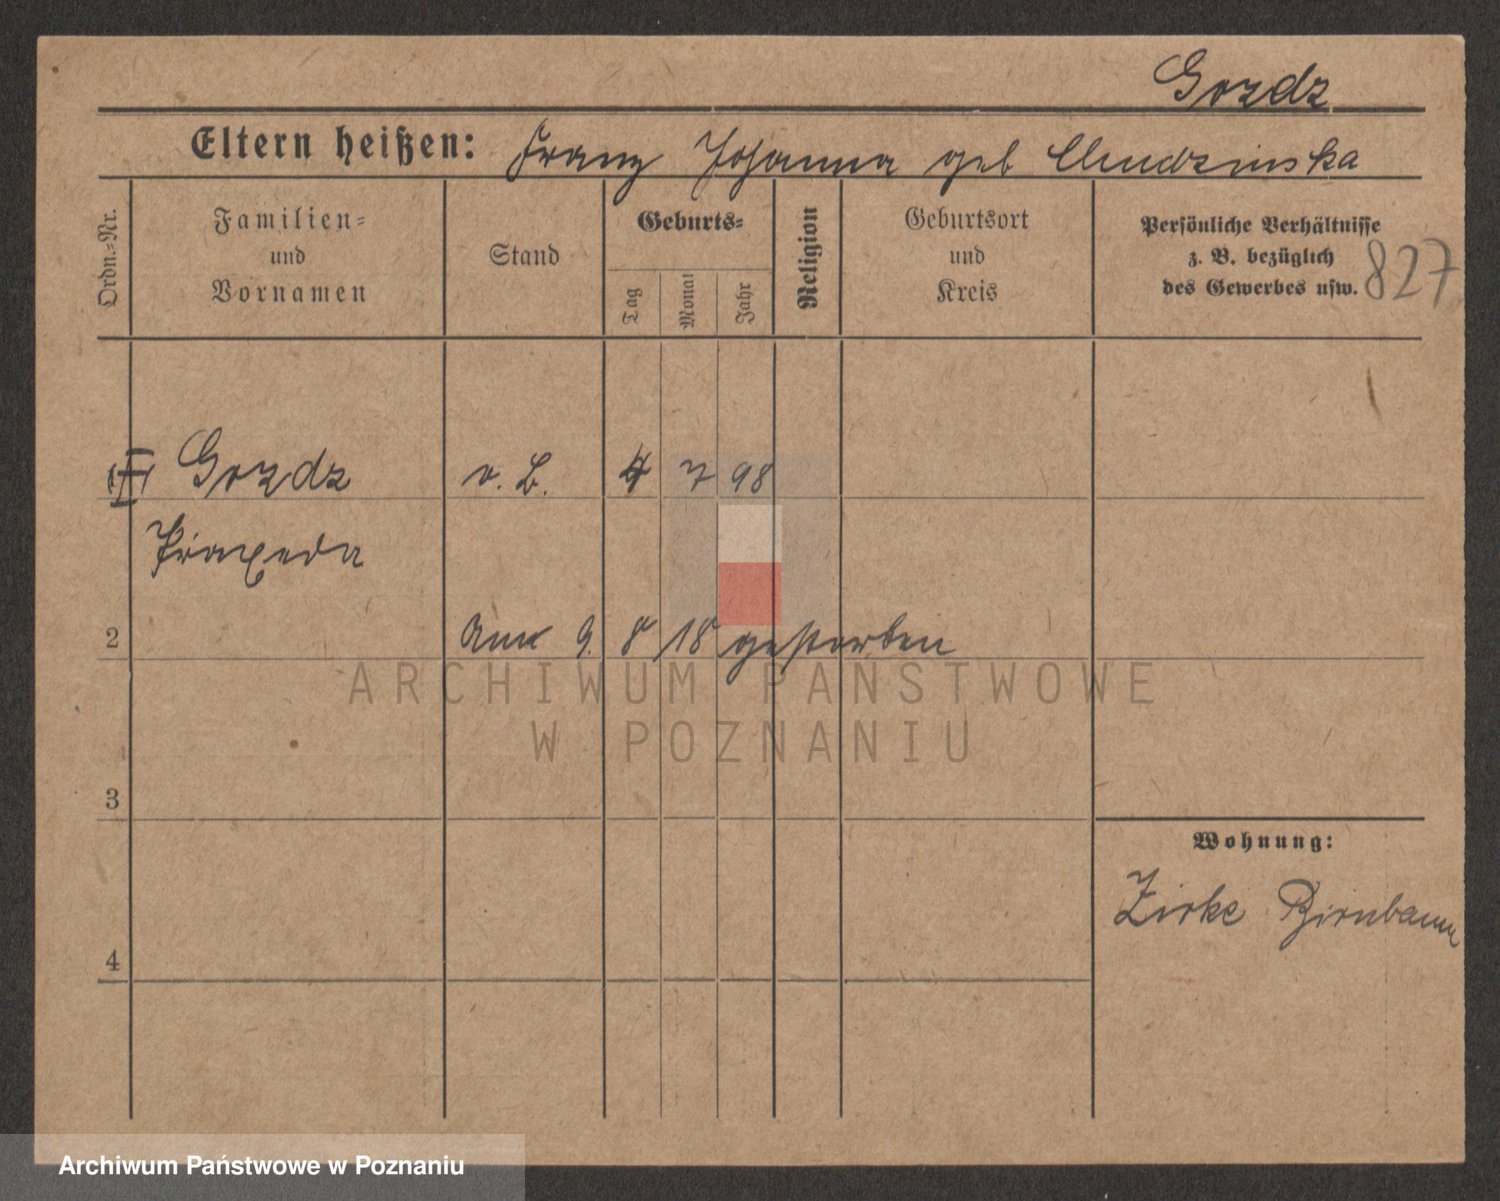 Gozdz
Eltern heißen: Franz Johanna geb Chudzinska
Ordn.-Nr.
Familien-
und
Vornamen
Stand
Geburts-
Tag
Monat
Jahr
Religion
Geburtsort
und
Kreis
Persönliche Verhältnisse
z. B. bezüglich
des Gewerbes usw.
827
Gozdz o. B. 4 7 98
Praxeda
2 Am 9. 8 18 gestorben
ARCHIWUM PAŃSTWOWE
W POZNANIU
3
Wohnung:
Zirke Birnbaum
4
Archiwum Państwowe w Poznaniu